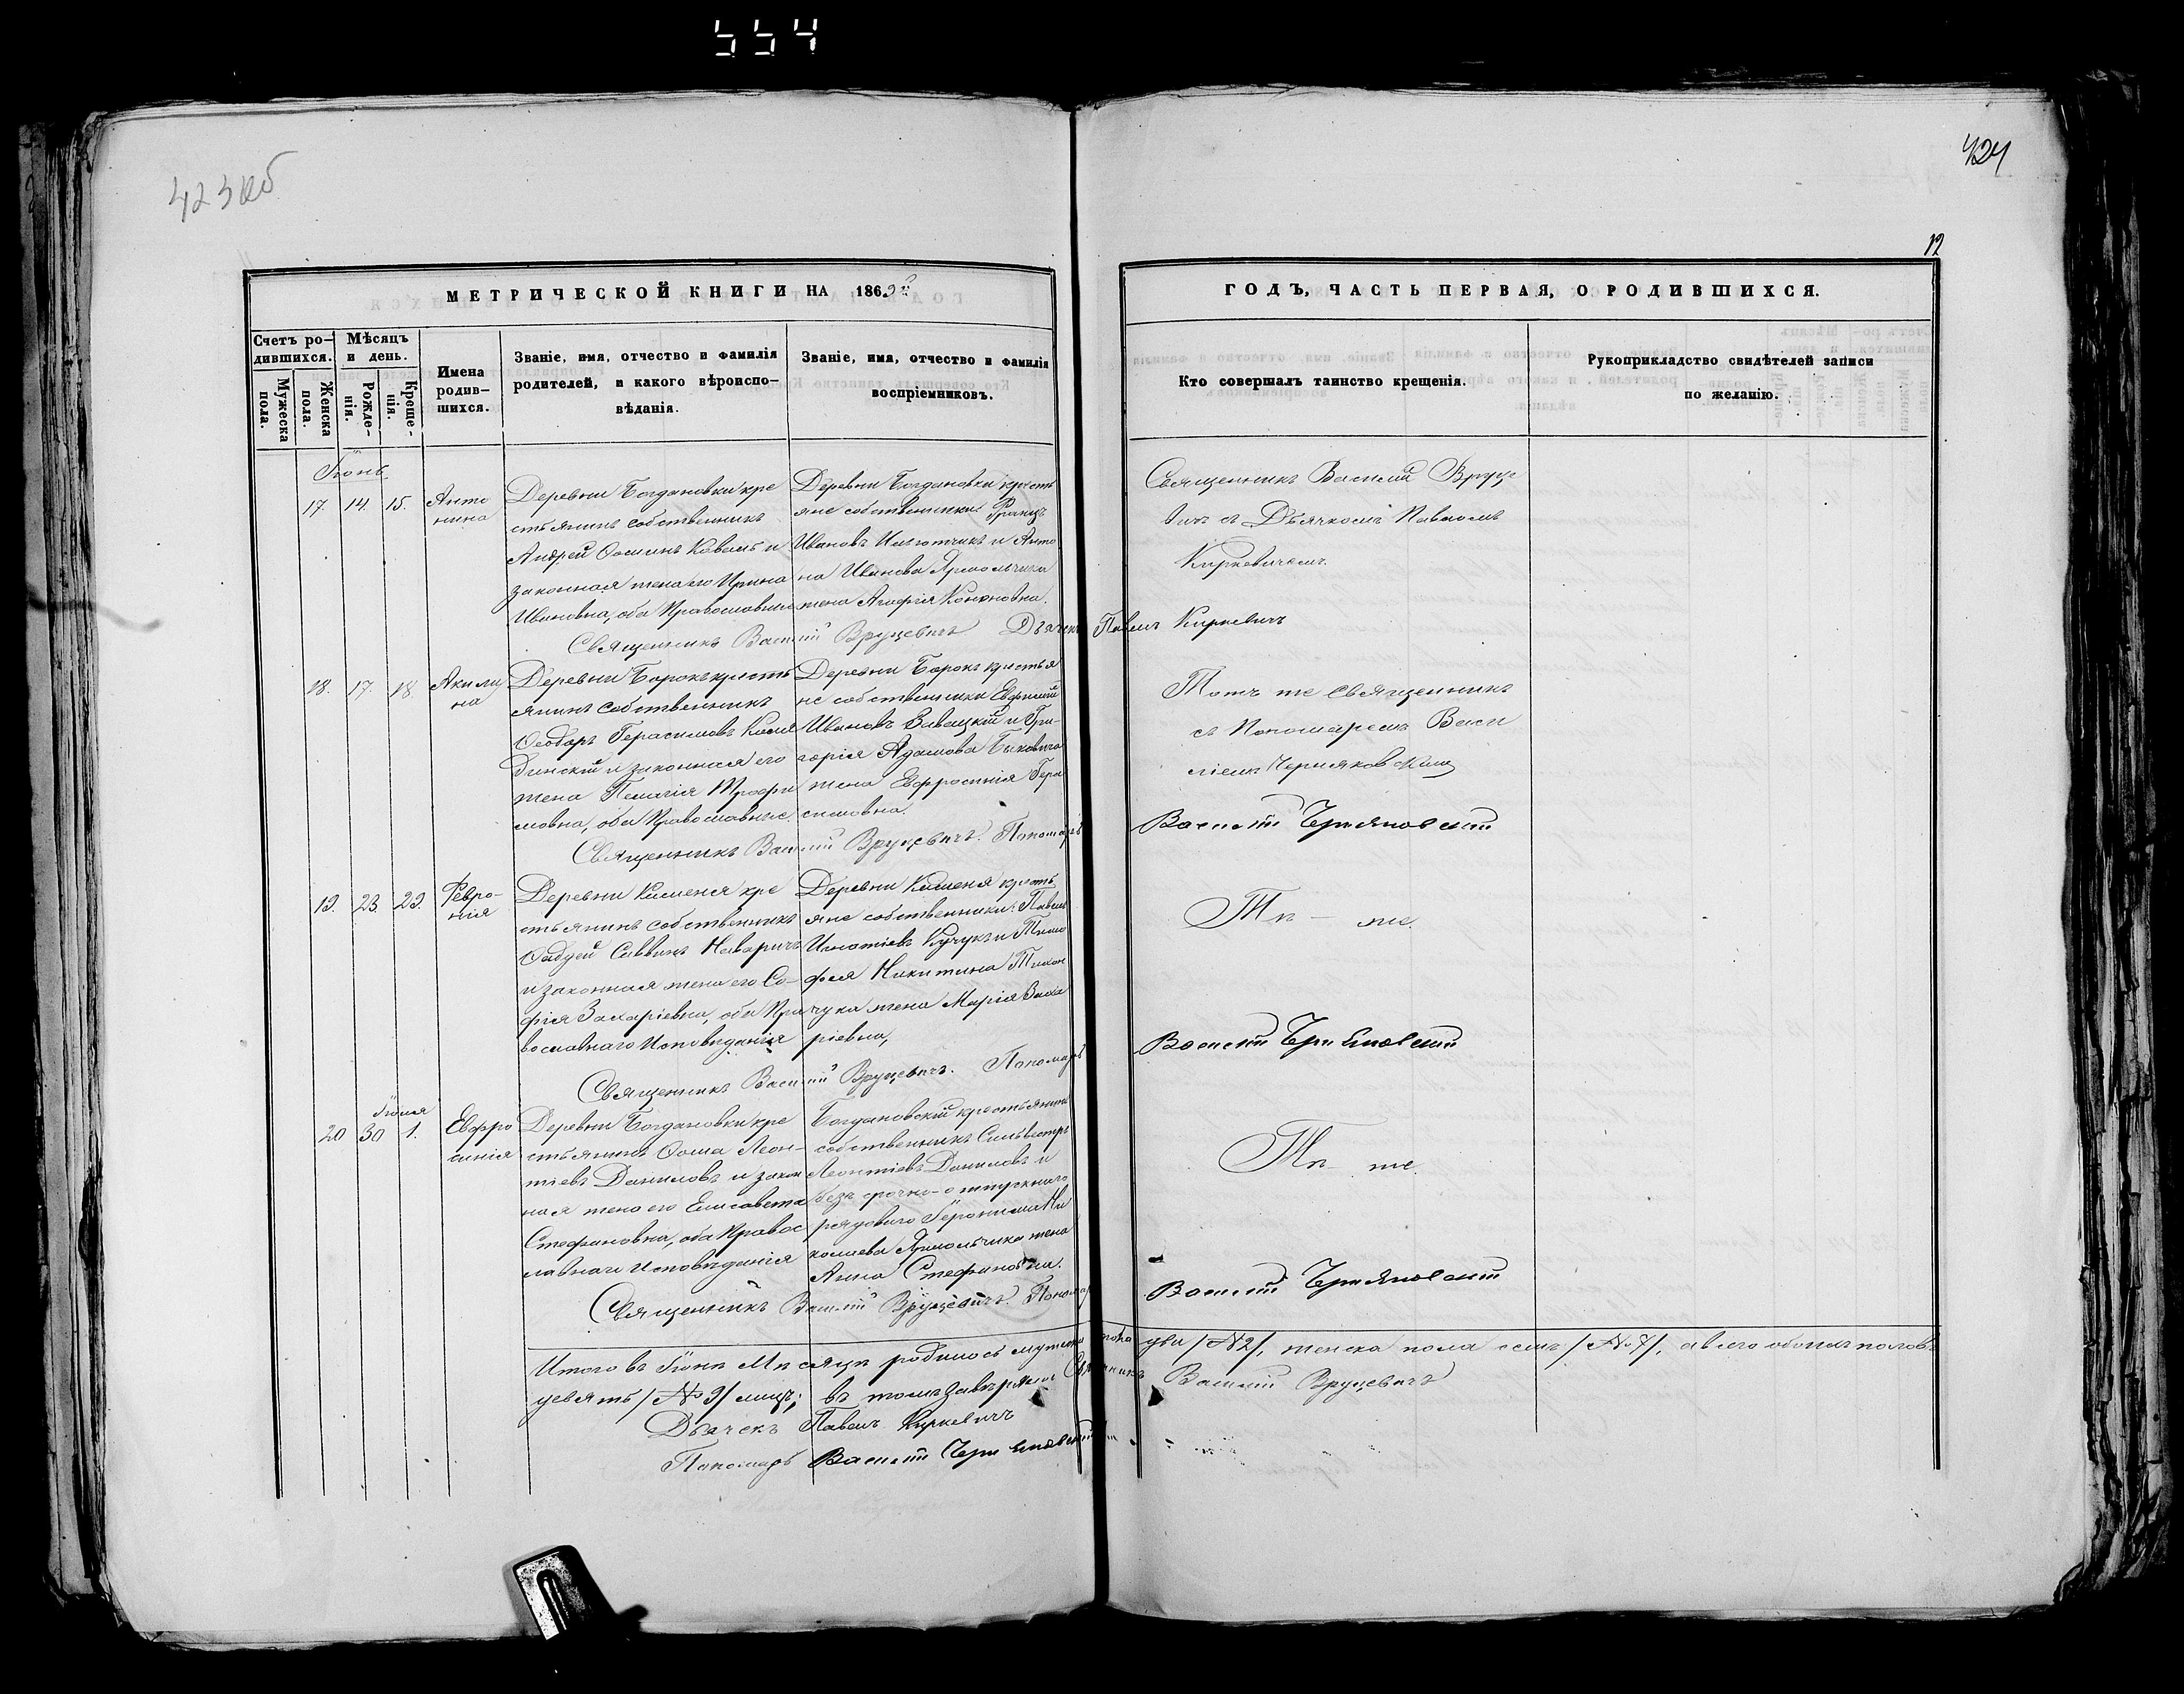 554
423 об
424
12
МЕТРИЧЕСКОЙ КНИГИ НА 1869й
ГОДЪ, ЧАСТЬ ПЕРВАЯ, О РОДИВШИХСЯ.
Счетъ ро-
дившихся.
Мужеска
пола.
Женска
пола.
Мѣсяцъ
и день.
Рожде-
нія.
Креще-
нія.
Имена
родив-
шихся.
Званіе, имя, отчество и фамилія
родителей, и какого вѣроиспо-
вѣданія.
Званіе, имя, отчество и фамилія
воспріемниковъ.
Кто совершалъ таинство крещенія.
Рукоприкладство свидѣтелей записи
по желанію.
Іюнь
17. 14. 15.
Анто
нина
Деревни Богдановки кре
стьянинъ собственникъ
Андрей Ѳоминъ Коваль и
законная жена его Ирина
Ивановна, оба Православные
Деревни Богдановки кресть
яне собственники: Францъ
Ивановъ и Анто
на Иванова Ярмольчика
жена Агафія Кононовна.
Священникъ Василій Вруце
вичъ съ Дьячкомъ Павломъ
Киркевичемъ.
Священникъ Василій Вруцевичъ Дьячекъ Павелъ Киркевичъ
18. 17. 18.
Акили
на
Деревни Борокъ кресть
янинъ собственникъ
Ѳеодоръ Герасимовъ
и законная его
жена Пелагія Трофи
мовна, оба Православные.
Деревни Борокъ крестья
не собственники Евфимій
Ивановъ Завацкій и Гри-
горія Адамова Быковича
жена Евфросинія Гера
симовна.
Тотъ же священникъ
съ Пономаремъ Васи
ліемъ Черняковскимъ
Священникъ Василій Вруцевичъ. Пономарь
Василій Черняковскій
19. 23. 29.
Февро-
нія
Деревни Кименя кре
стьянинъ собственникъ
Фадей Саввинъ Назаричъ
и законная жена его Со-
фія Захаріевна, оба Пра
вославнаго Исповѣданія
Деревни Кименя кресть
яне собственники: Павелъ
Игнатіевъ Кучукъ и Тимо
фея Никитина Тихон
чука жена Марія Заха
ріевна,
Тѣ – же.
Священникъ Василій Вруцевичъ. Пономарь
Василій Черняковскій
Іюля
20 30 1.
Евфро
синія
Деревни Богдановки кре
стьянинъ Ѳома Леон-
тіевъ Даниловъ и закон
ная жена его Елисавета
Стефановна, оба Правос
лавнаго Исповѣданія
Богдановскій крестьянинъ
собственникъ Сильвестръ
Леонтіевъ Даниловъ и
безсрочно-отпускнаго
рядоваго Іеронима Ни
колаева Ярмольчика жена
Анна Стефановна.
Тѣ – же.
Священникъ Василій Вруцевичъ. Пономарь
Василій Черняковскій
Итого въ Іюнѣ Мѣсяцѣ родилось мужеска пола два /№2/, женска пола семь /№7/, а всего обоихъ половъ
девять /№ 9/ лицъ; въ томъ завѣряемъ Священникъ Василій Вруцевичъ
Дьячекъ Павелъ Киркевичъ
Пономарь Василій Черняковскій